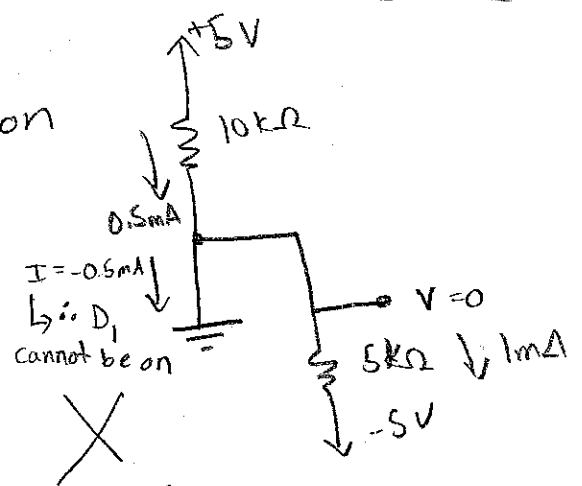 +5V
on
10kΩ
0.5mA
I = -0.5mA
↳ ∴ D₁
cannot be on
V = 0
5kΩ
1mA
-5V